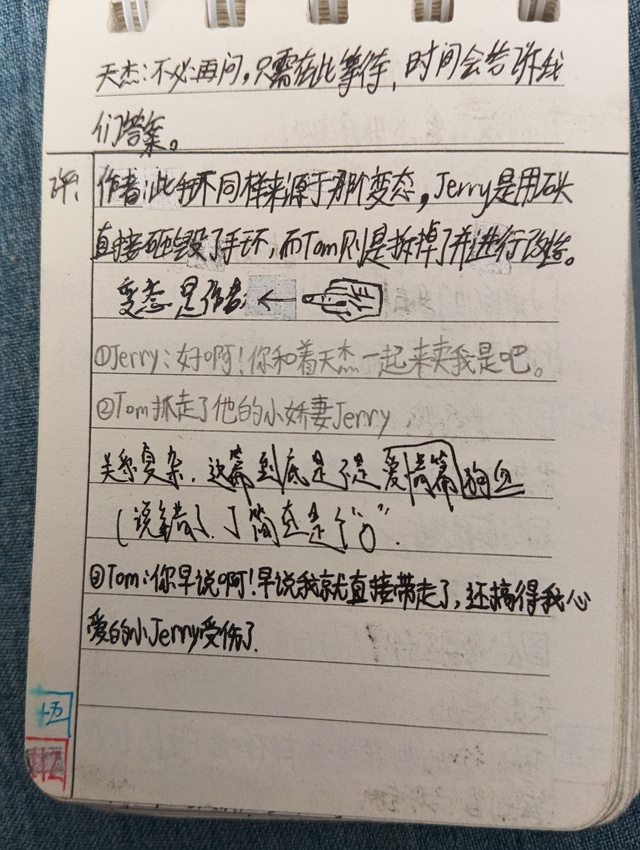 天杰：不必再问，只需在此等待，时间会告诉我
们答案。
评：作者：此手环同样来源于那个变态，Jerry是用石头
直接砸毁了手环，而Tom则是拆掉了并进行改造。
变态是作者 ←
①Jerry：好啊！你和着天杰一起来卖我是吧。
②Tom抓走了他的小娇妻Jerry，
关系复杂，这篇到底是不是爱情篇狗血
（说错了，丁简直是个"0"．
③Tom：你早说啊！早说我就直接带走了，还搞得我心
爱的小Jerry受伤了．
十五